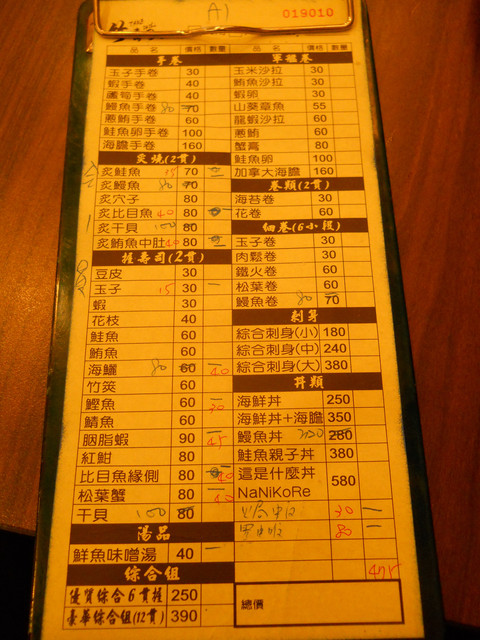 A1
019010
品名 價格 數量
手卷
玉子手卷 30
蝦手卷 40
蘆筍手卷 40
鰻魚手卷 80 70
蔥鮪手卷 60
鮭魚卵手卷 100
海膽手卷 160
炙燒(2貫)
炙鮭魚 15 70 二
炙鰻魚 80 70
炙穴子 80
炙比目魚 40 80
炙干貝 100 80
炙鮪魚中肚 40 80 二
握壽司(2貫)
豆皮 30
玉子 15 30 一
蝦 30
花枝 40
鮭魚 60
鮪魚 60
海鱺 80 60 一 40
竹筴 60
鰹魚 60 一 30
鯖魚 60
胭脂蝦 90 一 45
紅魽 80
比目魚緣側 80 40
松葉蟹 80 一 40
干貝 100 80
湯品
鮮魚味噌湯 40 一
綜合組
優質綜合6貫握 250
豪華綜合組(12貫) 390
品名 價格 數量
軍艦卷
玉米沙拉 30
鮪魚沙拉 30
蝦卵 30
山葵章魚 55
龍蝦沙拉 60
蔥鮪 60
蟹膏 80
鮭魚卵 100
加拿大海膽 160
卷類(2貫)
海苔卷 30
花卷 60
細卷(6小段)
玉子卷 30
肉鬆卷 30
鐵火卷 60
松葉卷 60
鰻魚卷 80 70
刺身
綜合刺身(小) 180
綜合刺身(中) 240
綜合刺身(大) 380
丼類
海鮮丼 250
海鮮丼+海膽 350
鰻魚丼 280
鮭魚親子丼 380
這是什麼丼
NaNiKoRe 580
30 一
80 一
475
總價